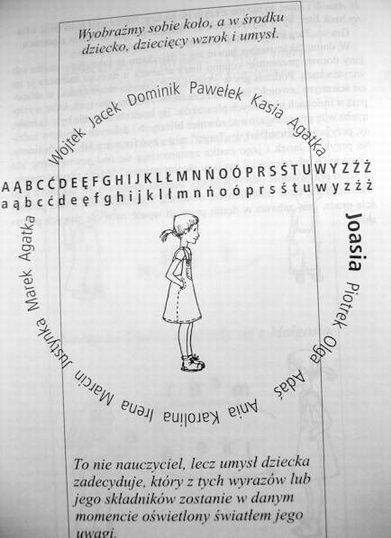 Wyobraźmy sobie koło, a w środku
dziecko, dziecięcy wzrok i umysł.
Wojtek Jacek Dominik Pawełek Kasia Agatka
A Ą B C Ć D E Ę F G H I J K L Ł M N Ń O Ó P R S Ś T U W Y Z Ź Ż
a ą b c ć d e ę f g h i j k l ł m n ń o ó p r s ś t u w y z ź ż
Joasia Piotrek Olga Adaś Ania Karolina Irena Marcin Justynka Marek Agatka
To nie nauczyciel, lecz umysł dziecka
zadecyduje, który z tych wyrazów lub
jego składników zostanie w danym
momencie oświetlony światłem jego
uwagi.